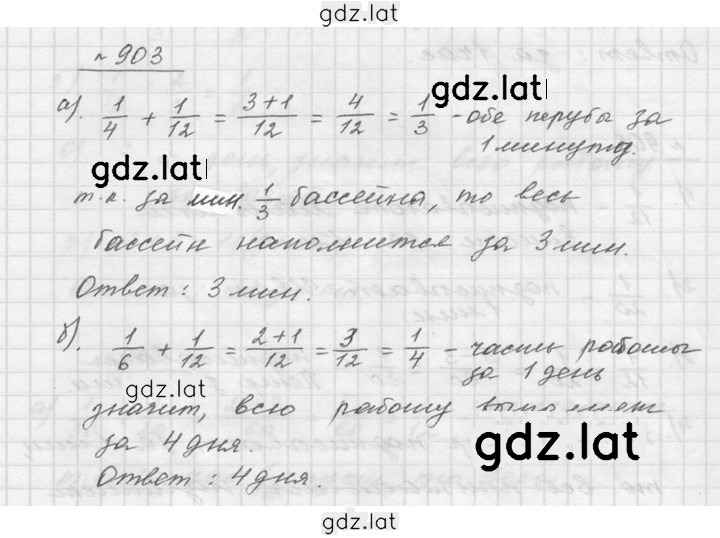 gdz.lat
№ 903
а). 1/4 + 1/12 = 3+1/12 = 4/12 = 1/3 - обе трубы за
gdz.lat
1 минуту.
gdz.lat
т.к. за мин. 1/3 бассейна, то весь
бассейн наполнится за 3 мин.
Ответ: 3 мин.
б). 1/6 + 1/12 = 2+1/12 = 3/12 = 1/4 - часть работы
за 1 день
gdz.lat
значит, всю работу выполнят
за 4 дня.
gdz.lat
Ответ: 4 дня.
gdz.lat